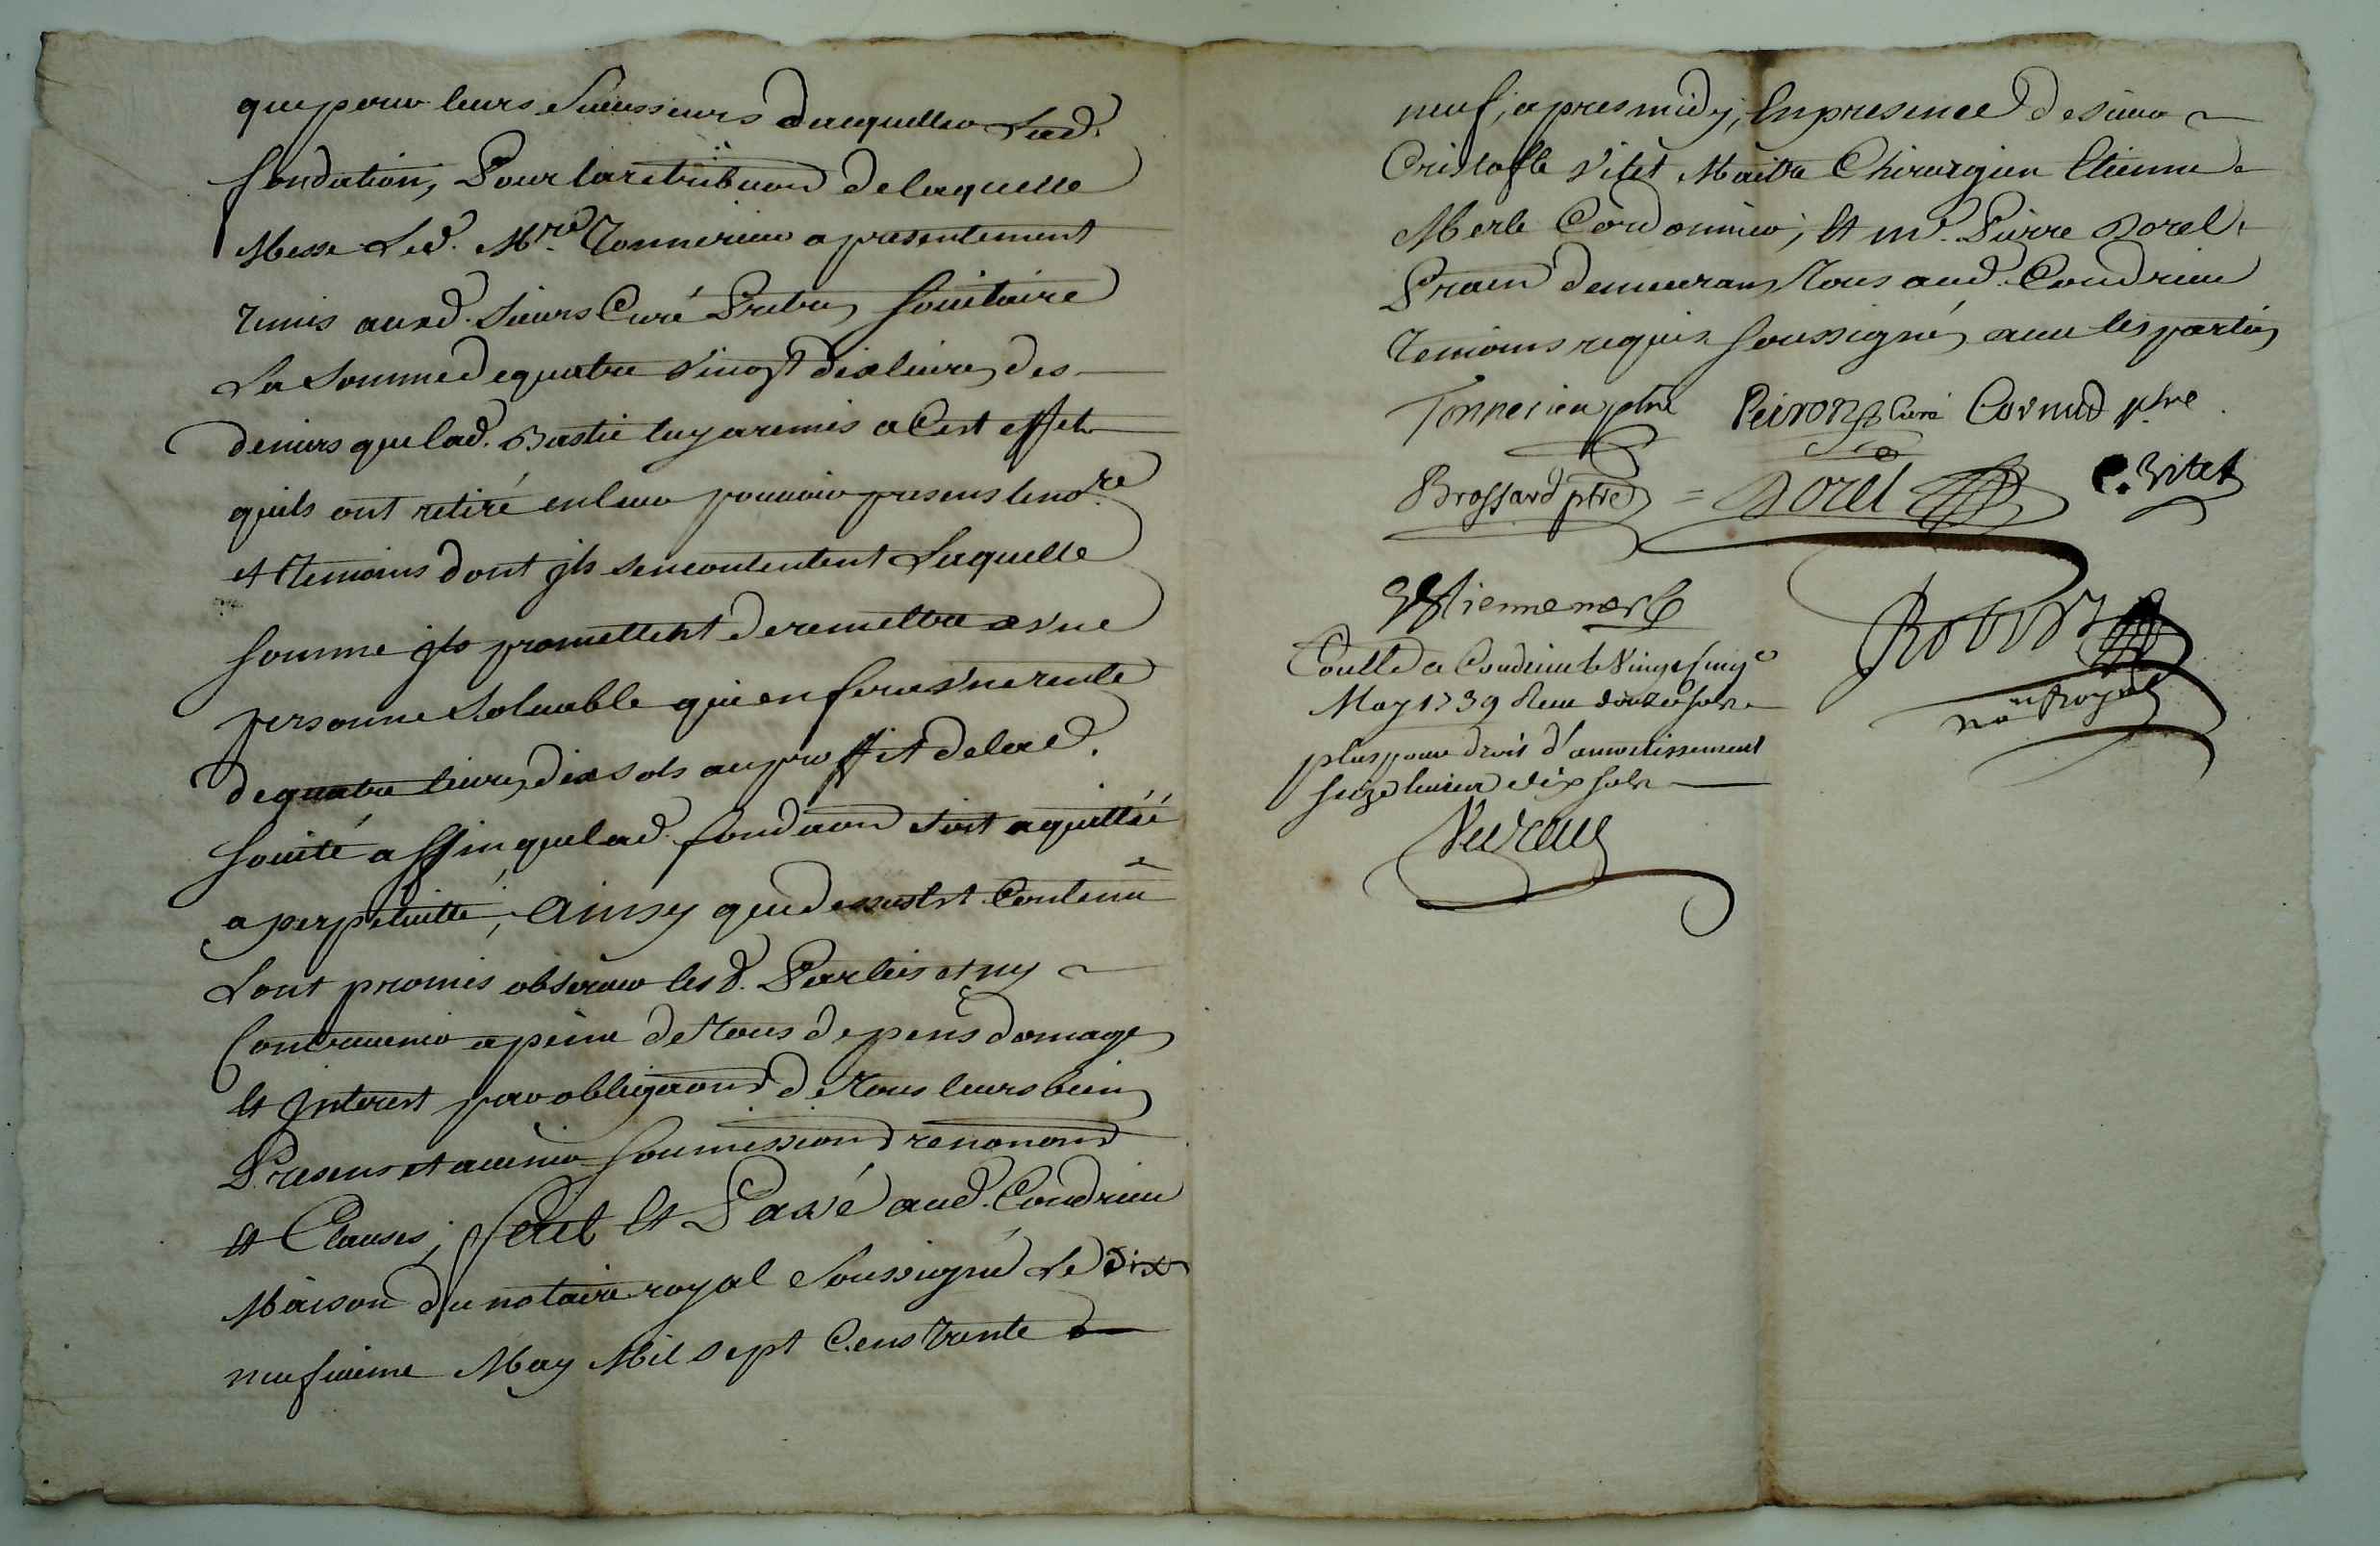 que pour leurs Successeurs dacquitter Lad.
fondation, Pour la retribuon de laquelle
Messe Led. Mre Tonnerieu a presentement
remis auxd. Sieurs Curé Pretres Societaire
La Somme de quatre vingt dix livres des
deniers que lad. Bastie luy a remis a Cest effet
quils ont retiré en leur pouvoir presens le nore
et Temoins dont jls sen contentent Laquelle
Somme jls promettent de remettre a vne
personne Soluable qui en fera vne rente
de quatre livres dix sols au proffit de lad.
Societé affin que lad. fondaon soit aquittéé
a perpetuitté, Ainsy que dessus Est Contenu
Lont promis observer lesd. Parties et ny
Contrevenir a peine de Tous depens domages
Et Jnterest par obligaons de Tous leurs biens
Presens et avenir Soumissions renonons
Et Clauses; fait Et Passé aud. Condrieu
Maison du notaire royal Soussigné Le dix
neufvieme May Mil sept Cens Trente
neuf, apres midy, En presence de sieur
Cristofle Vitet Maitre Chirurgien Etienne
Merle Cordonnier, Et mr. Pierre Dorel
Praen demeurans Tous aud. Condrieu
Temoins requis Soussignés avec les parties
Tonnerieu ptre Peiron Curé Cornud ptre
Brossard ptre = Dorel C. Vitet
Estienne merle
Conllé a Condrieu le Vingt cinq
May 1739 Reçu douze sols
plus pour droit d'amortissement
seize livres dix sols
nore Royal